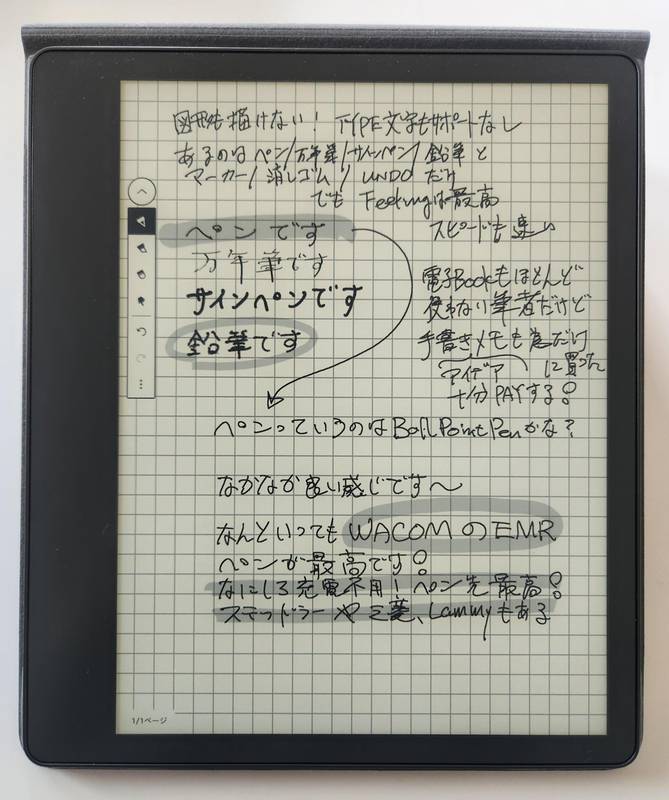 図形も描けない! TYPE文字もサポートなし
あるのはペン/万年筆/サインペン/鉛筆と
マーカー/消しゴム/UNDOだけ
でも Feelingは最高
スピードも速い
ペンです
万年筆です
サインペンです
鉛筆です
電子Bookもほとんど
使わない筆者だけど
手書きメモ の為だけ
アイデア に買った
十分PAYする!
ペンっていうのはBallPointPenかな?
なかなか良い感じです〜
なんといってもWACOMのEMR
ペンが最高です!
なにしろ充電不用! ペン先最高!
ステッドラーや三菱、Lammyもある
1/1ページ